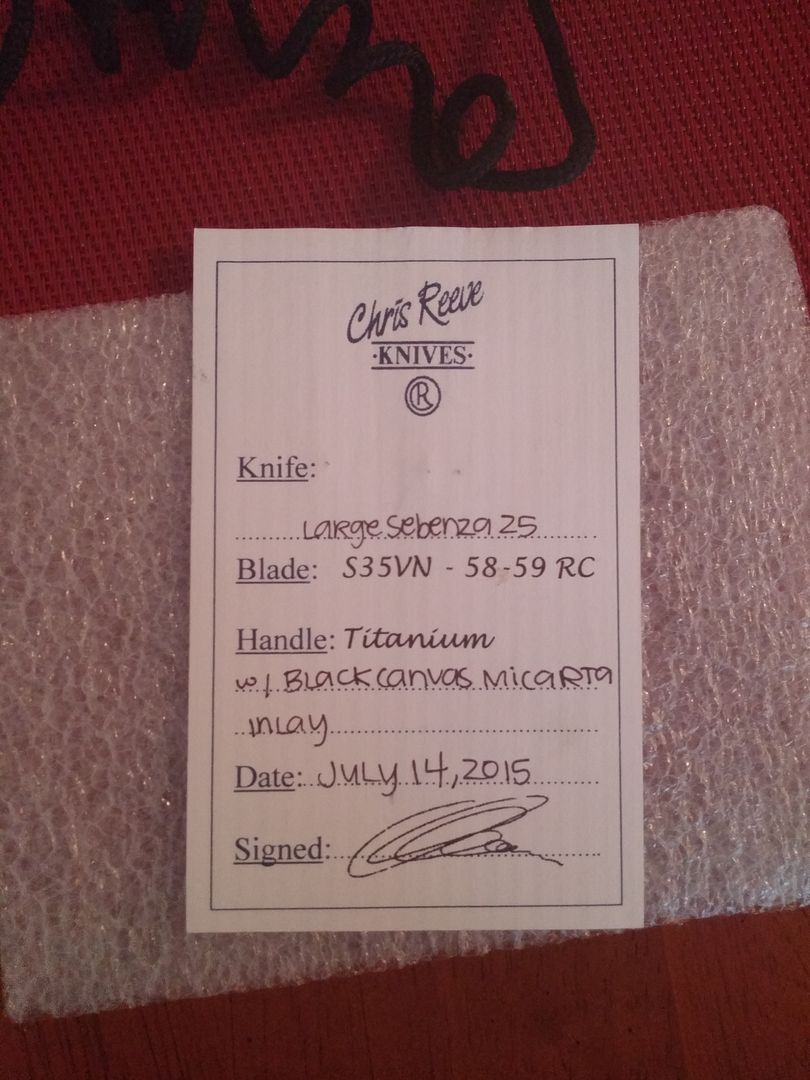 Chris Reeve
·KNIVES·
®
Knife:
Large Sebenza 25
Blade: S35VN - 58-59 RC
Handle: Titanium
w/ Black canvas Micarta
inlay
Date: July 14, 2015
Signed: